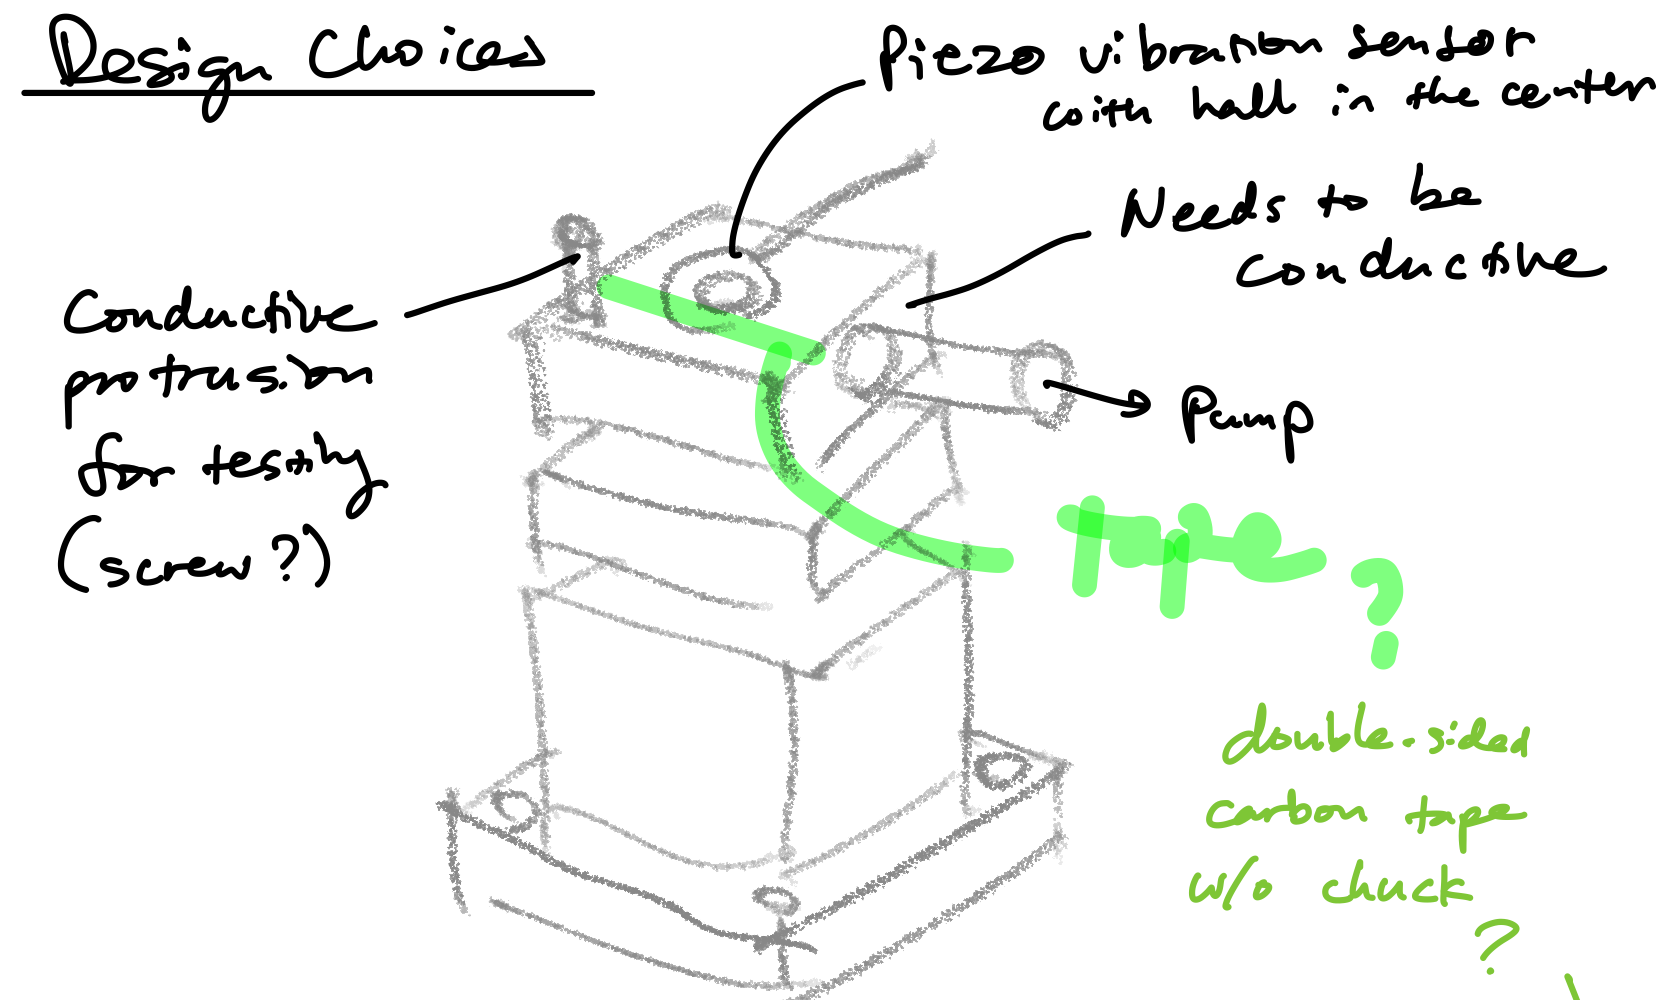 Design Choices
Piezo vibration sensor
with hall in the center
Needs to be
conductive
Conductive
protrusion
for testing
(screw?)
Pump
tape?
double-sided
carbon tape
w/o chuck
?